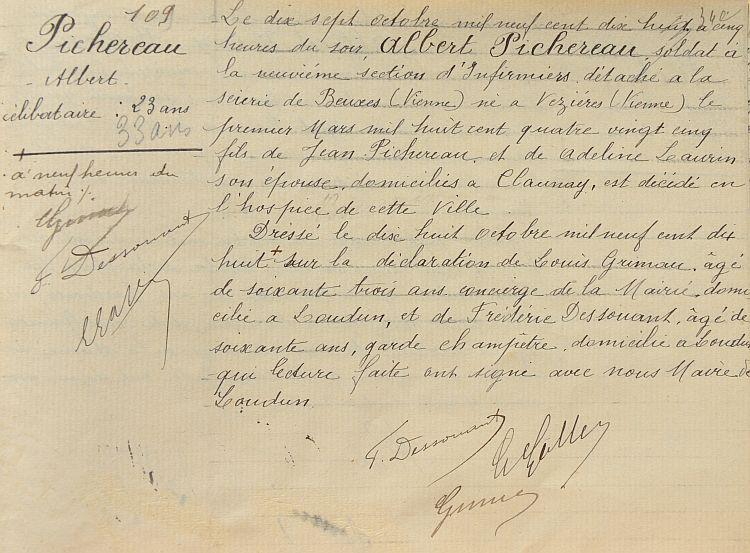 109
Pichereau
Albert.
célibataire : 23 ans
33 ans
à neuf heures du
matin ./.
Grimau
F. Dessouant
Le dix sept octobre mil neuf cent dix huit, à cinq
heures du soir Albert Pichereau, soldat à
la neuvième section d'Infirmiers, détaché a la
scierie de Beuxes (Vienne) né a Vezières (Vienne) le
premier Mars mil huit cent quatre vingt cinq
fils de Jean Pichereau, et de Adeline Laurin
son épouse, domiciliés à Claunay, est décédé en
l'hospice de cette Ville
Dressé le dix huit octobre mil neuf cent dix
huit + sur la déclaration de Louis Grimau, âgé
de soixante trois ans concierge de la Mairie, domi
cilié a Loudun, et de Frédéric Dessouant, âgé de
soixante ans, garde champêtre, domicilié à Loudun
qui lecture faite ont signé avec nous Maire de
Loudun.
F. Dessouant
Grimau